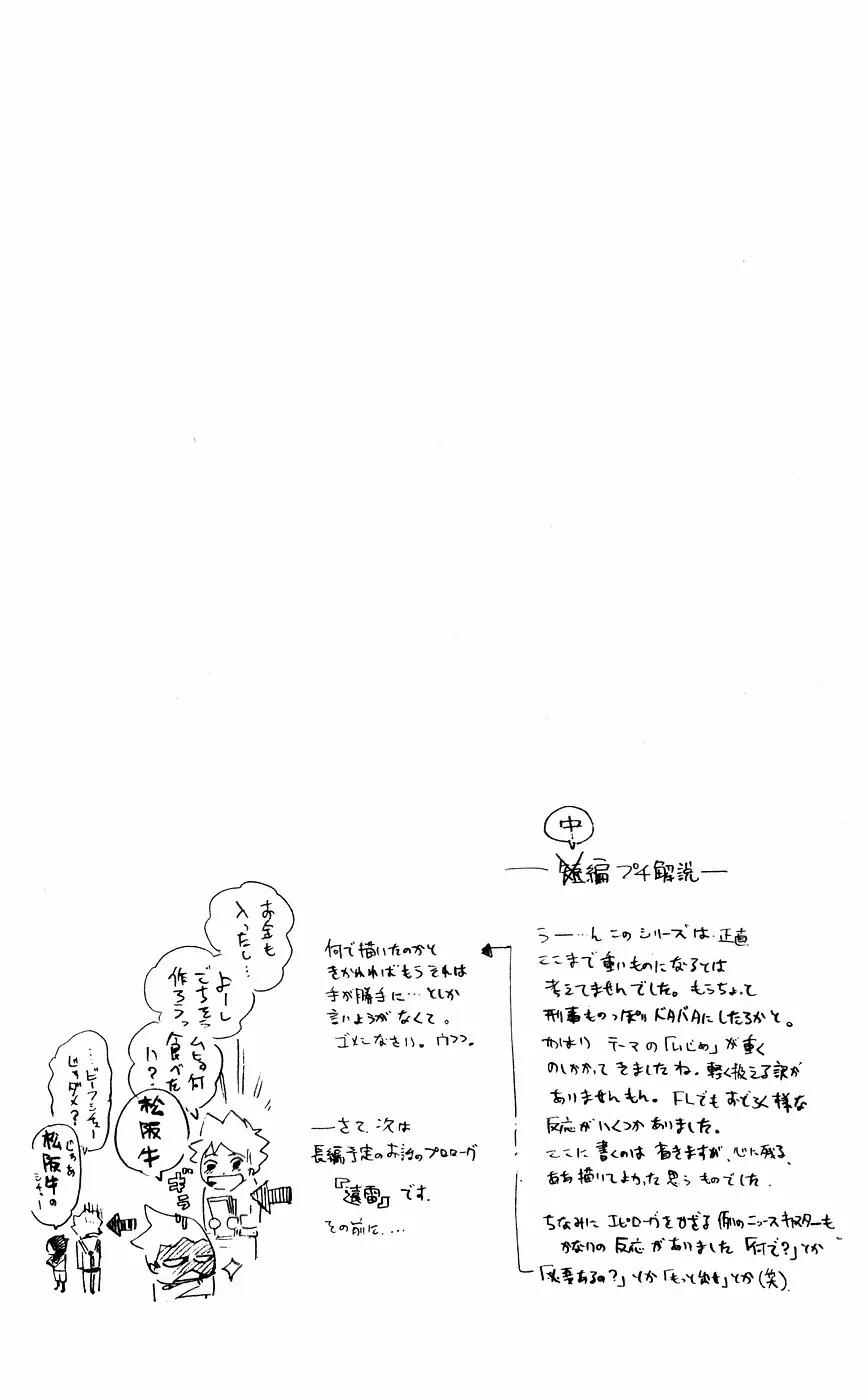 中
編 プチ解説
うー…ん このシリーズは 正直
ここまで重いものになるとは
考えてませんでした。もうちょっと
刑事ものっぽい ドタバタにしたろかと。
やはり テーマの「いじめ」が重く
のしかかって きましたね。軽く扱える訳が
ありませんもん。FLでもおどろく様な
反応がいくつかありました。
ここに 書くのは 省きますが、心に残る、
ああ描いてよかった 思う ものでした。
ちなみに エピローグをかざる 例のニュースキャスターも
かなりの 反応 がありました 「何で？」とか
「必要あるの？」とか「もっと出せ」とか(笑)
何で描いたのかと
きかれればもう それは
手が勝手に…としか
言いようがなくて。
ゴメンなさい。ウフフ。
―さて、次は
長編予定のお話のプロローグ
『遠雷』です。
その前に、…
お金も
入ったし…
よーし
ごちそう
作ろうっ
ムヒョ何
食べた
い？
松阪牛
ギラ
…ビーフシチュー
じゃダメ？
じゃあ
松阪牛の
シチュー